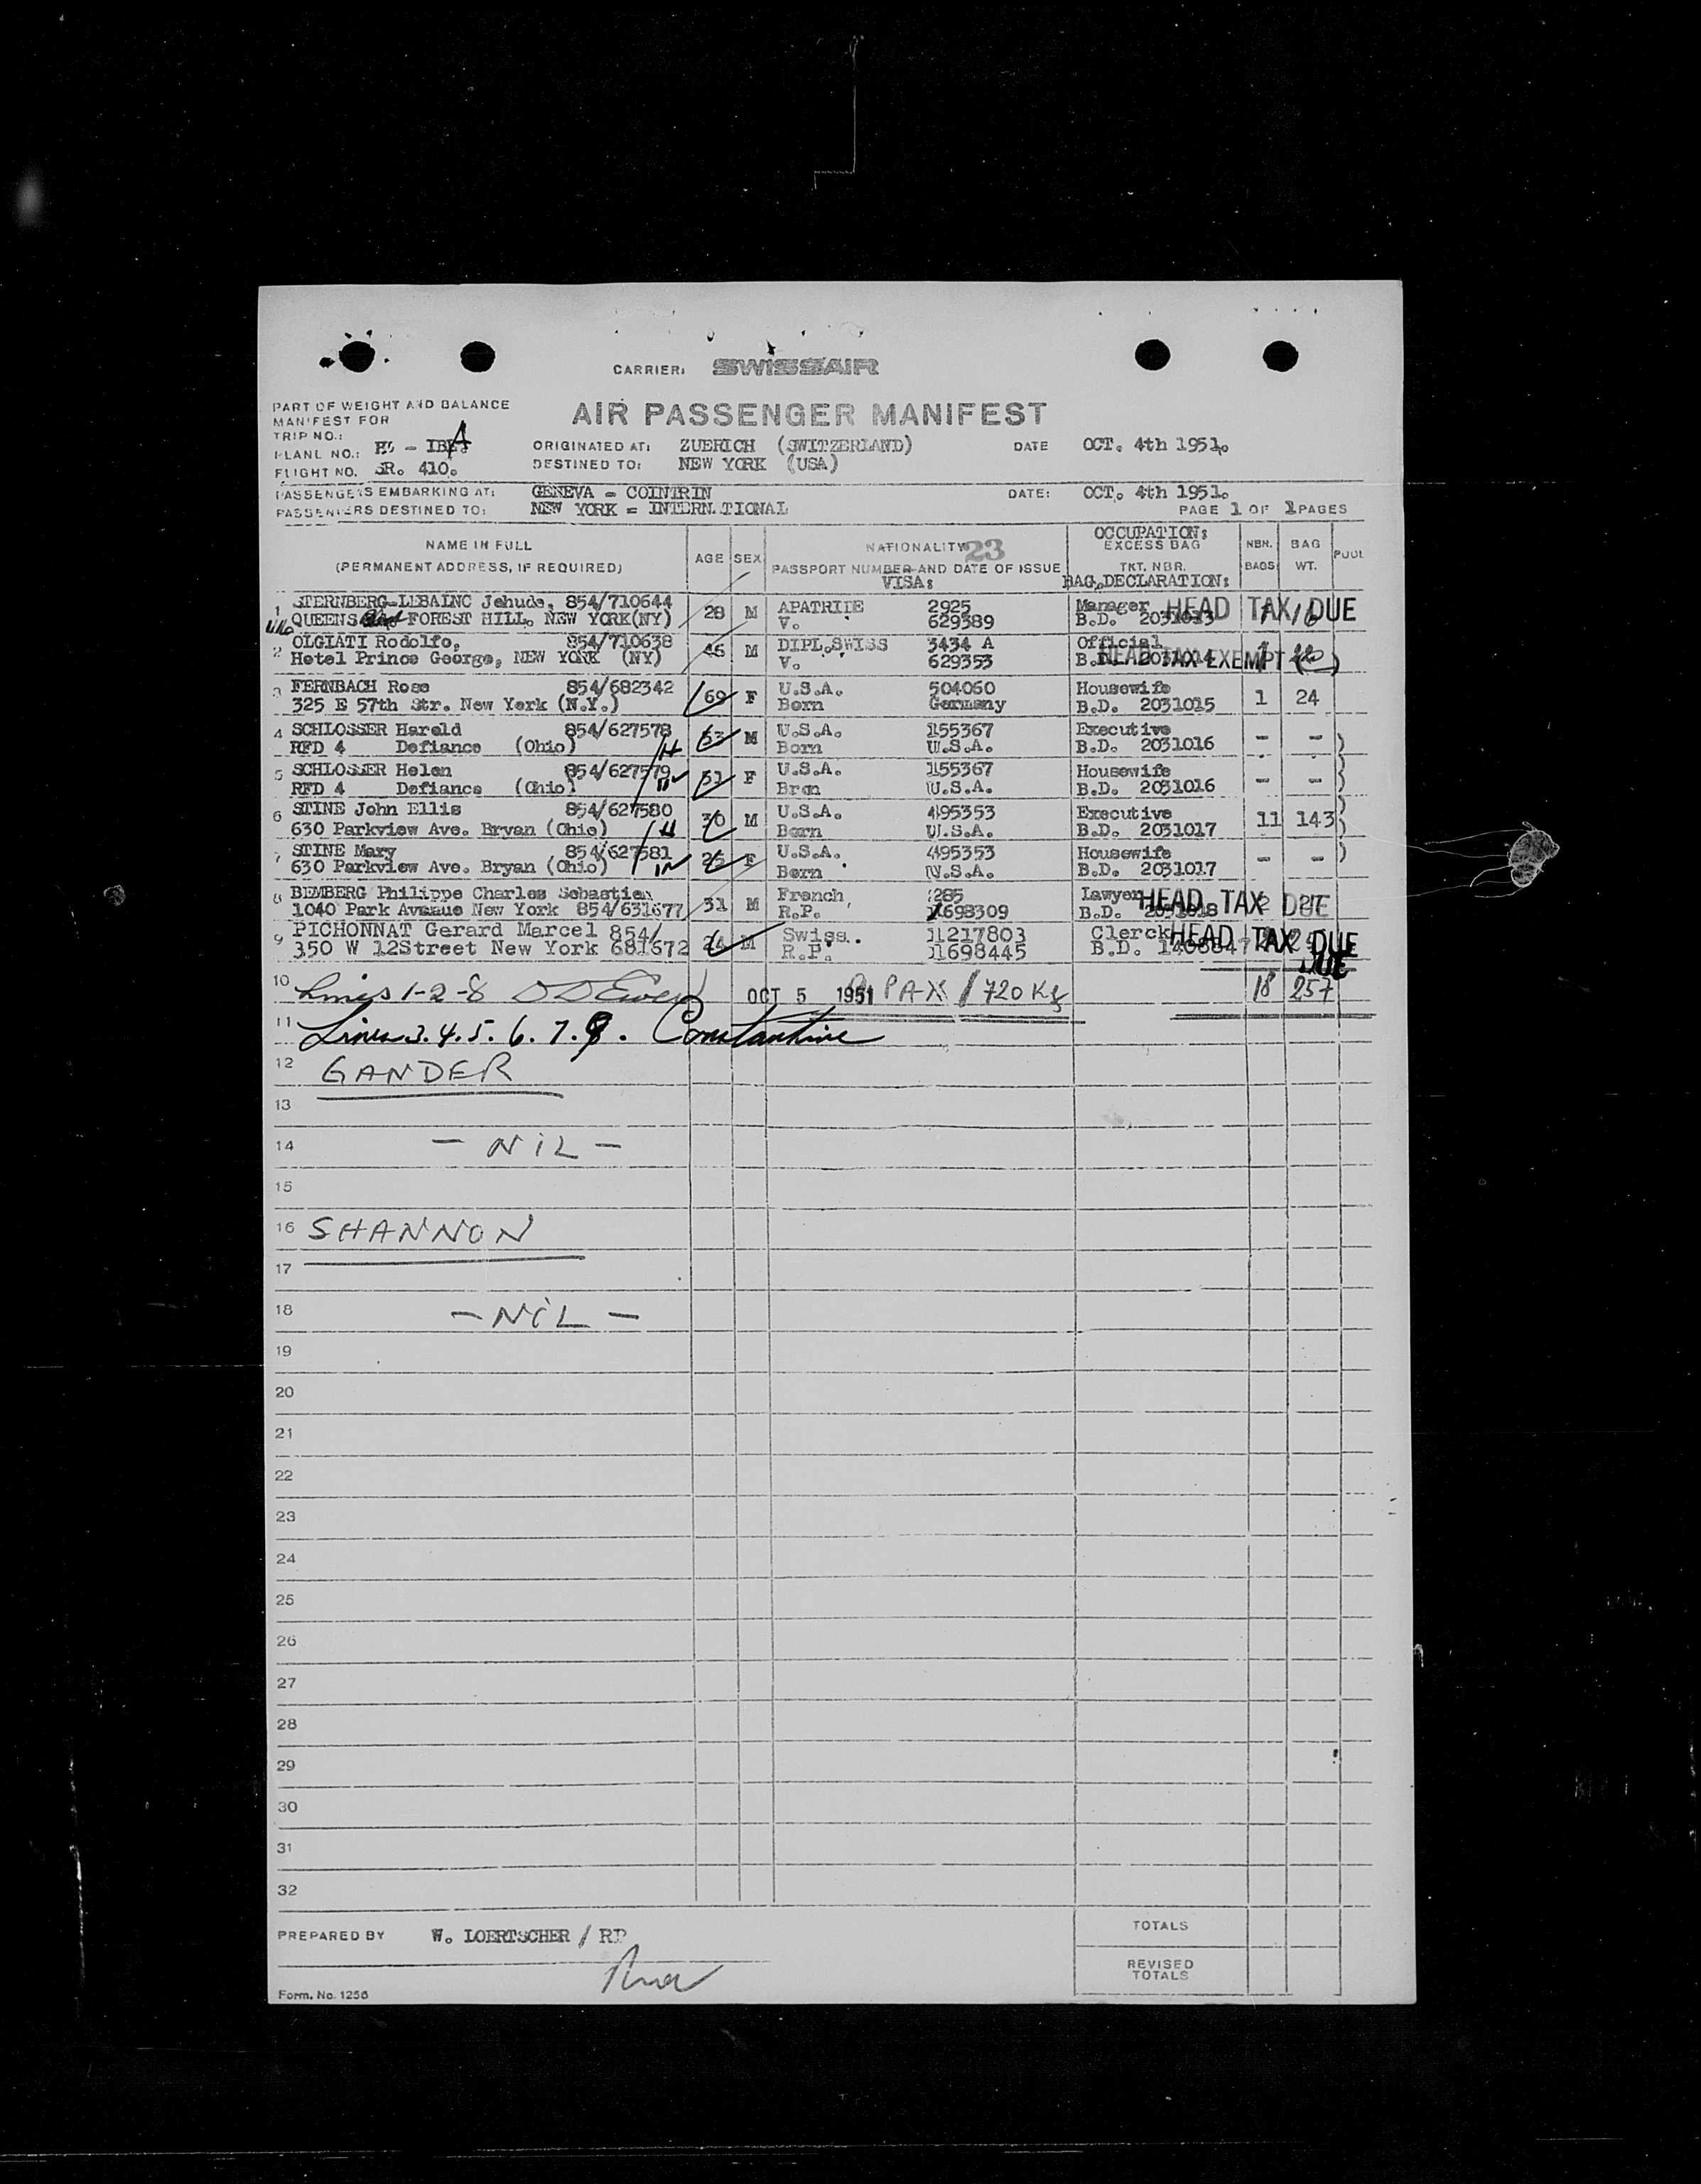 CARRIER: SWISSAIR
PART OF WEIGHT AND BALANCE
MANIFEST FOR
AIR PASSENGER MANIFEST
TRIP NO.:
PLANE NO.: HB - IBA
FLIGHT NO. SR. 410.
ORIGINATED AT: ZUERICH (SWITZERLAND) DATE OCT. 4th 1951.
DESTINED TO: NEW YORK (USA)
PASSENGERS EMBARKING AT: GENEVA = COINTRIN DATE: OCT. 4th 1951.
PASSENGERS DESTINED TO: NEW YORK = INTERNATIONAL PAGE 1 OF 1 PAGES
NAME IN FULL
(PERMANENT ADDRESS, IF REQUIRED)
AGE SEX
NATIONALITY 23
PASSPORT NUMBER AND DATE OF ISSUE
VISA:
OCCUPATION:
EXCESS BAG
TKT. NBR.
BAG.DECLARATION:
NBR. BAGS
BAG WT.
POOL
1 STERNBERG-LEBAINC Jehuda. 854/710644 28 M APATRIDE 2925 Manager HEAD TAX DUE
QUEENS FOREST HILL. NEW YORK(NY) V. 629389 B.D. 2031013 1 16
2 OLGIATI Rodolfo, 854/710638 46 M DIPL.SWISS 3434 A Official
Hotel Prince George, NEW YORK (NY) V. 629353 B.D. 2031014 HEAD TAX EXEMPT
3 FERNBACH Rose 854/682342 69 F U.S.A. 504060 Housewife 1 24
325 E 57th Str. New York (N.Y.) Born Germany B.D. 2031015
4 SCHLOSSER Harold 854/627578 53 M U.S.A. 155367 Executive - -
RFD 4 Defiance (Ohio) H Born U.S.A. B.D. 2031016
5 SCHLOSSER Helen 854/627579 51 F U.S.A. 155367 Housewife - -
RFD 4 Defiance (Ohio) W Bron U.S.A. B.D. 2031016
6 STINE John Ellis 854/627580 30 M U.S.A. 495353 Executive 11 143
630 Parkview Ave. Bryan (Ohio) H Born U.S.A. B.D. 2031017
7 STINE Mary 854/627581 26 F U.S.A. 495353 Housewife - -
630 Parkview Ave. Bryan (Ohio) W Born U.S.A. B.D. 2031017
8 BEMBERG Philippe Charles Sebastien 31 M French, 285 Lawyer HEAD TAX DUE
1040 Park Avenue New York 854/631677 R.P. 1698309 B.D. 2031018 2 27
9 PICHONNAT Gerard Marcel 854/ 24 M Swiss.. 11217803 Clerck HEAD TAX DUE
350 W 12Street New York 681672 R.P. 11698445 B.D. 1408847 DUE
10 Lines 1-2-8 OCT 5 1951 9 PAX / 720 Kg 18 257
11 Lines 3. 4. 5. 6. 7. 9. Constantine
12 GANDER
13
14 - NIL -
15
16 SHANNON
17
18 - NIL -
19
20
21
22
23
24
25
26
27
28
29
30
31
32
PREPARED BY W. LOERTSCHER / RP
TOTALS
REVISED
TOTALS
Form. No. 1256